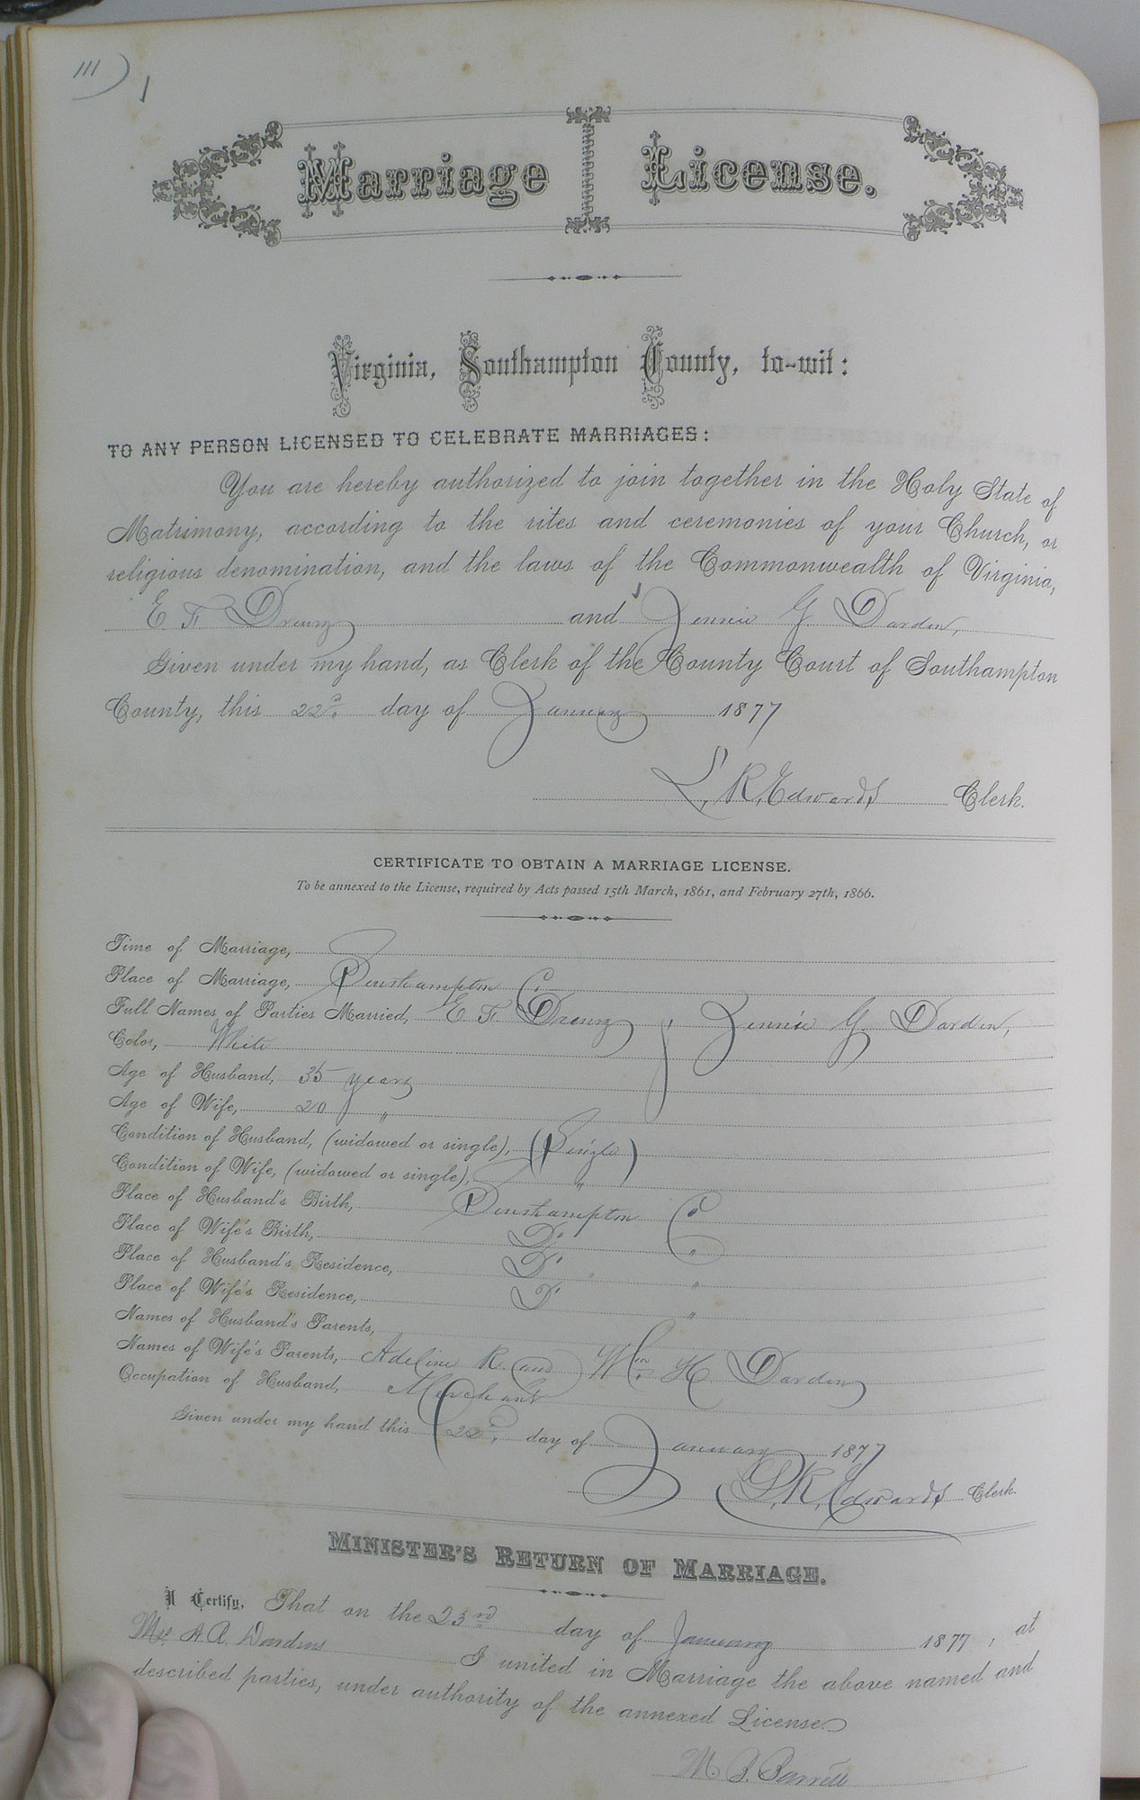 111)
Marriage License.
Virginia, Southampton County, to-wit:
TO ANY PERSON LICENSED TO CELEBRATE MARRIAGES:
You are hereby authorized to join together in the Holy State of
Matrimony, according to the rites and ceremonies of your Church, or
religious denomination, and the laws of the Commonwealth of Virginia,
E. F. Drewry and Jennie G. Darden,
Given under my hand, as Clerk of the County Court of Southampton
County, this 22d. day of January 1877
L. R. Edwards Clerk.
CERTIFICATE TO OBTAIN A MARRIAGE LICENSE.
To be annexed to the License, required by Acts passed 15th March, 1861, and February 27th, 1866.
Time of Marriage,
Place of Marriage, Southampton Co.
Full Names of Parties Married, E. F. Drewry, Jennie G. Darden,
Color, White
Age of Husband, 35 years
Age of Wife, 20 "
Condition of Husband, (widowed or single), (Single)
Condition of Wife, (widowed or single), "
Place of Husband's Birth, Southampton Co
Place of Wife's Birth, Do "
Place of Husband's Residence, Do "
Place of Wife's Residence, Do "
Names of Husband's Parents,
Names of Wife's Parents, Adeline R. and Wm. H. Darden
Occupation of Husband, Merchant
Given under my hand this 22d. day of January 1877
L. R. Edwards Clerk.
MINISTER'S RETURN OF MARRIAGE.
I Certify, That on the 23rd day of January 1877, at
Mrs. A. R. Dardens I united in Marriage the above named and
described parties, under authority of the annexed License